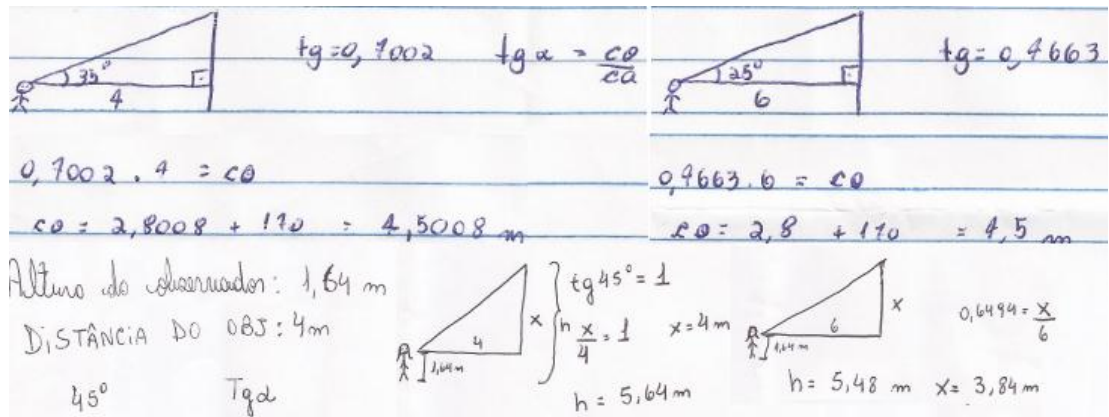 tg=0,7002 tg α = co/ca
35°
4
0,7002 . 4 = co
co = 2,8008 + 170 = 4,5008 m
tg= 0,4663
25°
6
0,4663.6 = co
co= 2,8 + 170 = 4,5 m
Altura do observador: 1,64 m
DISTÂNCIA DO OBJ: 4m
45° Tgα
4
x
h
1,64m
tg45° = 1
x/4 = 1 x=4m
h = 5,64m
6
x
1,64m
0,6494 = x/6
h= 5,48 m x= 3,84m